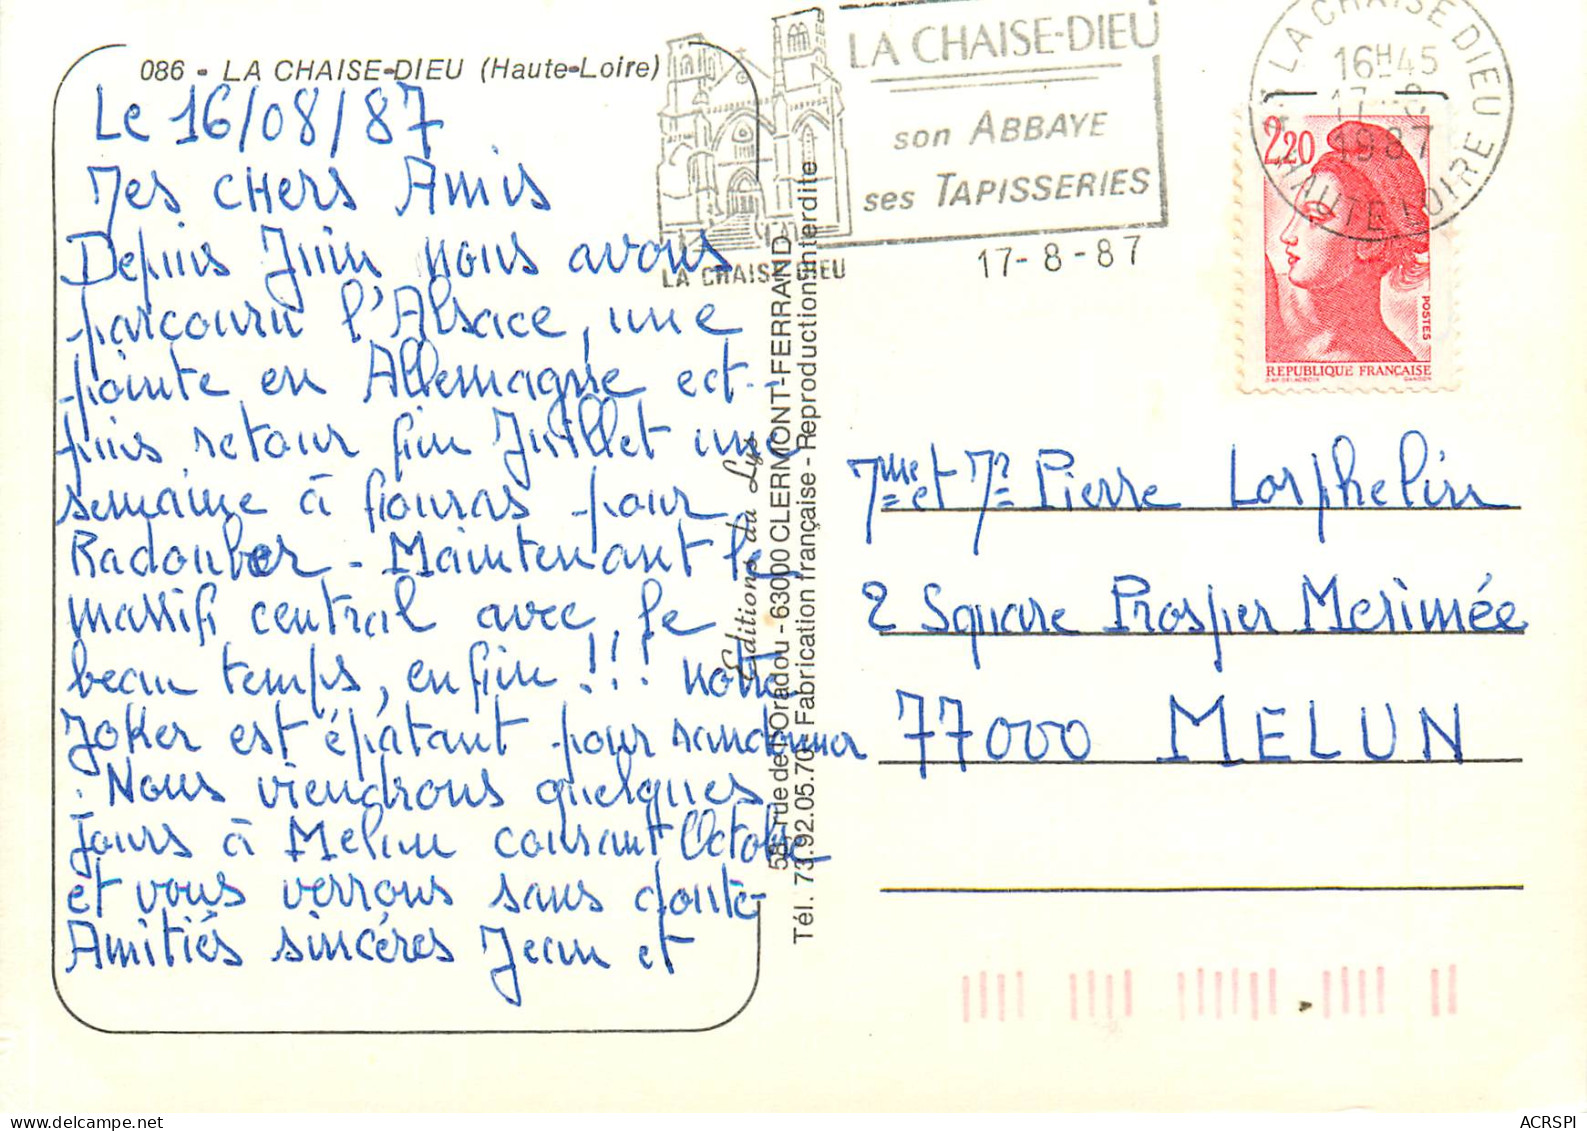 086 - LA CHAISE-DIEU (Haute-Loire)
Le 16/08/87
Mes CHers Amis
Depuis Juin nous avons
parcouru l'Alsace, une
pointe en Allemagne ect-
puis retour fin Juillet une
semaine à fouras pour
Radouber - Maintenant le
massif central avec le
beau temps, enfin !!! notre
Joker est épatant pour randonner
. Nous viendrons quelques
Jours à Melun courant Octobre
et vous verrons sans doute-
Amitiés sincéres Jean et
Editions du Lys
58, rue de l'Oradou - 63000 CLERMONT-FERRAND
Tél. 73.92.05.70 - Fabrication française - Reproduction interdite
LA CHAISE-DIEU
son ABBAYE
ses TAPISSERIES
LA CHAISE DIEU
17-8-87
LA CHAISE DIEU
16H45
17-8
1987
HAUTE LOIRE
2,20
POSTES
REPUBLIQUE FRANÇAISE
Mme et Mr Pierre Lorphelin
2 Square Prosper Merimée
77000 MELUN
A
ACRSPI